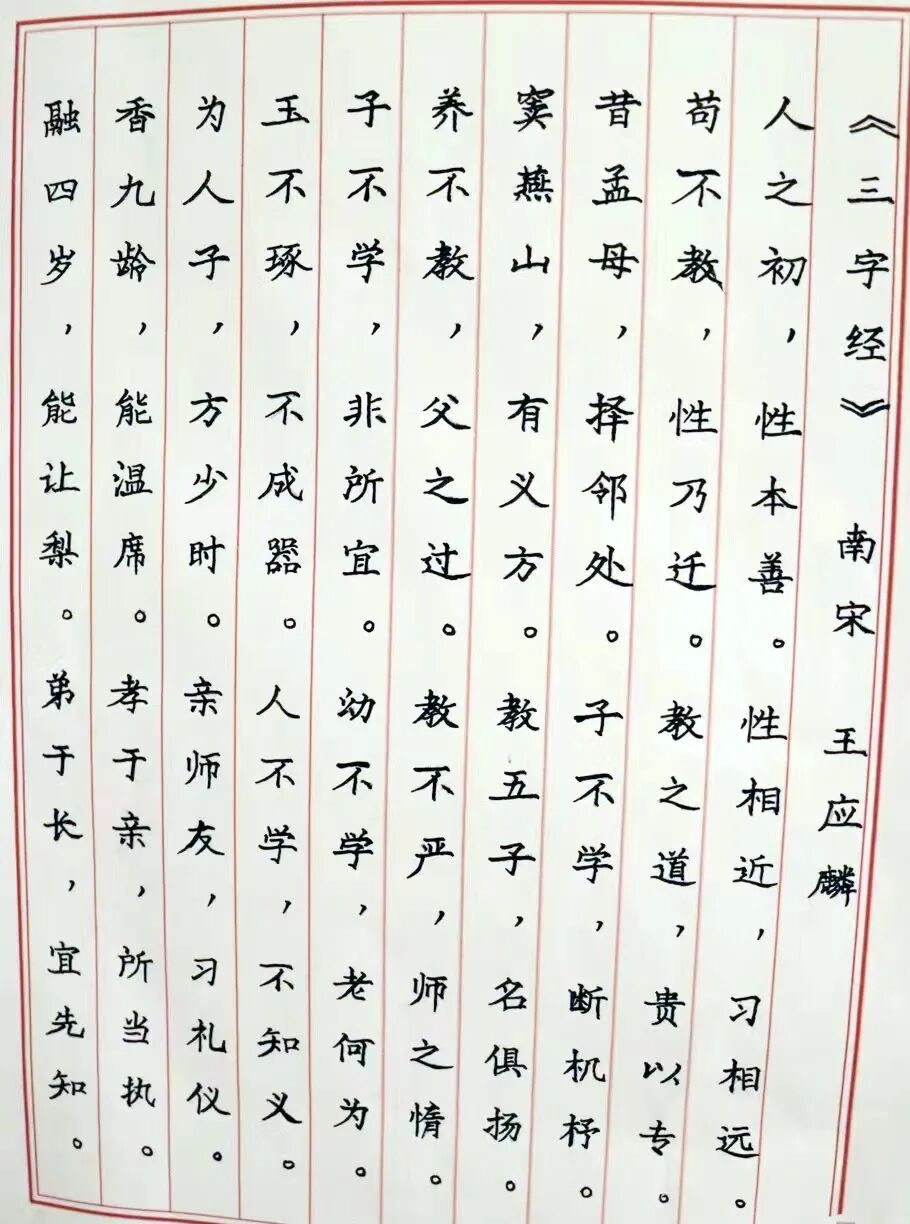 《三字经》 南宋 王应麟
人之初，性本善。性相近，习相远。
苟不教，性乃迁。教之道，贵以专。
昔孟母，择邻处。子不学，断机杼。
窦燕山，有义方。教五子，名俱扬。
养不教，父之过。教不严，师之惰。
子不学，非所宜。幼不学，老何为。
玉不琢，不成器。人不学，不知义。
为人子，方少时。亲师友，习礼仪。
香九龄，能温席。孝于亲，所当执。
融四岁，能让梨。弟于长，宜先知。